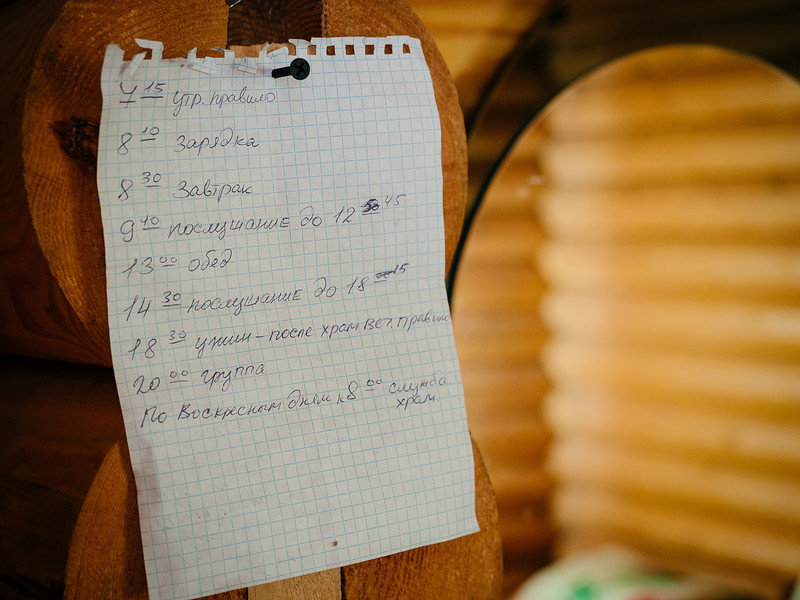 7 15 утр. правило
8 10 Зарядка
8 30 Завтрак
9 10 послушание до 12 45
13 00 обед
14 30 послушание до 18 15
18 30 ужин – после храм веч. правило
20 00 группа
По Воскресным дням к 8 00 служба.
храм